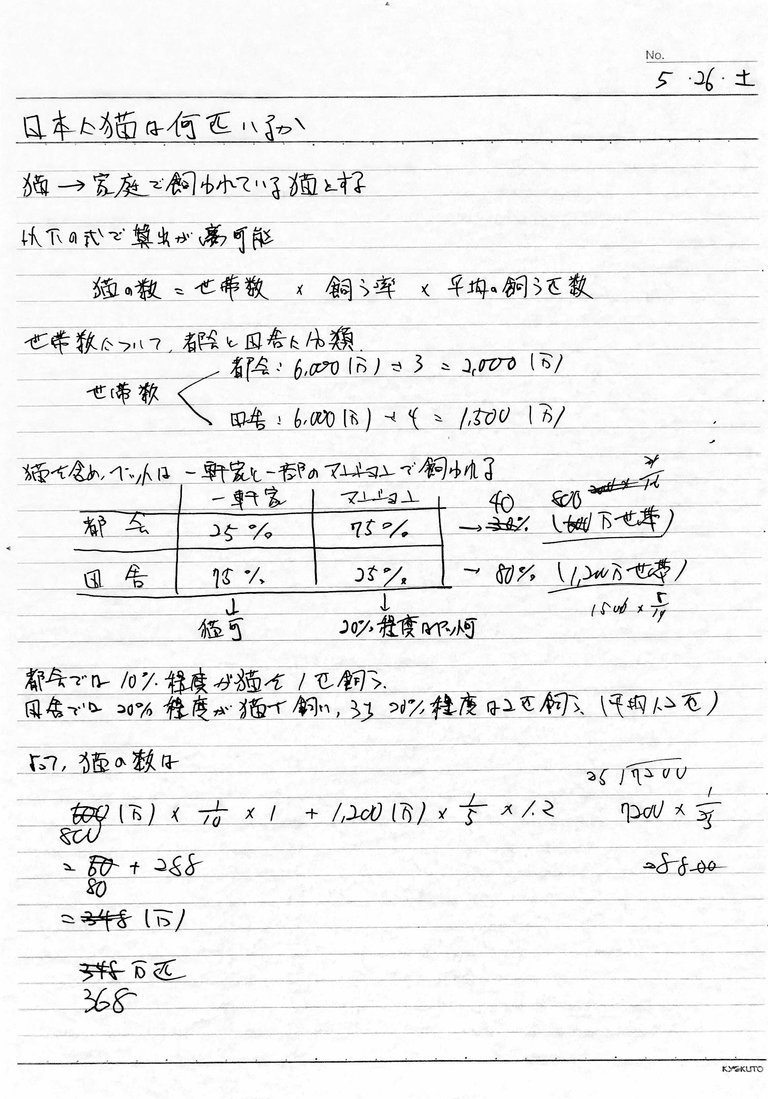 No.
5・26・土
日本に猫は何匹いるか
猫→家庭で飼われている猫とする
以下の式で算出が可能
猫の数 = 世帯数 × 飼う率 × 平均の飼う匹数
世帯数について、都会と田舎に分類
都会: 6,000(万) ÷ 3 = 2,000(万)
世帯数
田舎: 6,000(万) ÷ 4 = 1,500(万)
猫を含め、ペットは一軒家と一部のマンションで飼われる
一軒家 マンション
都会 25% 75% → 40 30% 800 (600万世帯)
田舎 75% 25% → 80% (1,200万世帯)
↓ ↓ 1500 ×
猫可 20%程度はペット可
都会では10%程度が猫を1匹飼う、
田舎では20%程度が猫を飼い、うち20%程度は2匹飼う、(平均1.2匹)
よって、猫の数は
25 7200
600(万) × 1/10 × 1 + 1,200(万) × 1/5 × 1.2 7200 × 1/25
800
= 60 + 288 28800
80
= 348(万)
348万匹
368
KYOKUTO